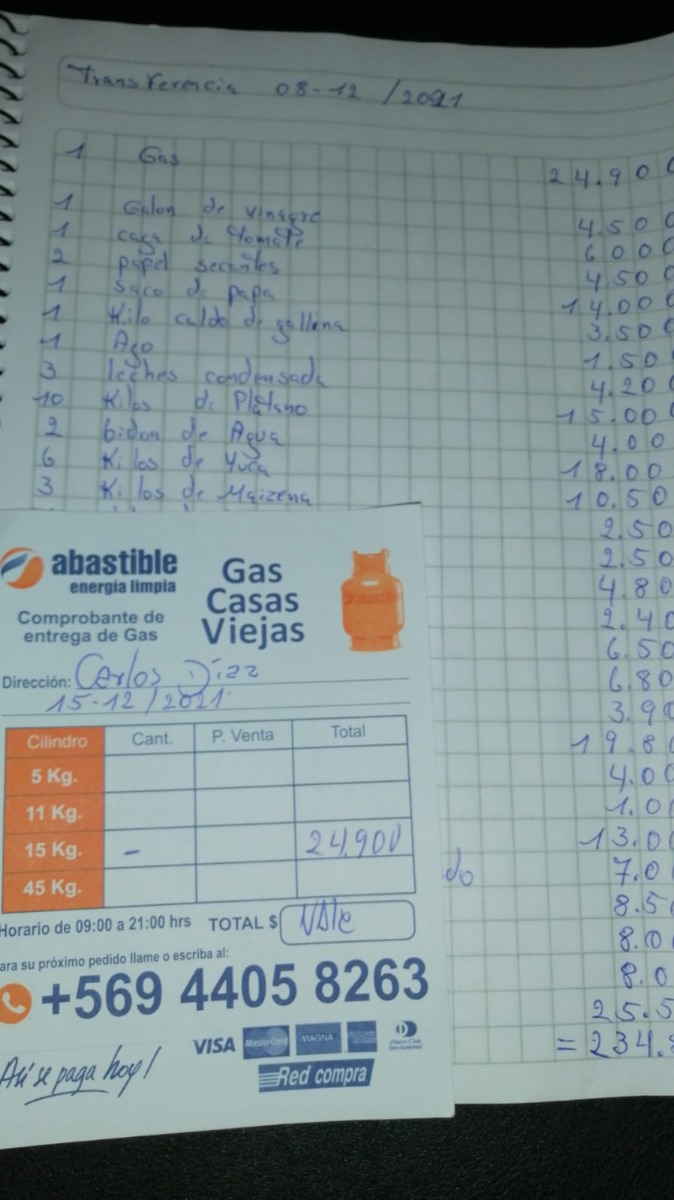 Transferencia 08-12/2021
1 Gas 24.900
1 Galon de vinagre 4.500
1 caga de tomate 6000
2 papel secantes 4500
1 saco de papa 14.000
1 Kilo caldo de gallina 3.500
1 Ago 1.500
3 leches condensada 4.200
10 Kilos de Platano 15.000
2 bidon de Agua 4.00
6 Kilos de Yuca 18.00
3 Kilos de Maizena 10.50
2.50
2.50
4.80
2.40
6.50
6.80
3.90
19.80
4.00
1.00
13.00
do 7.00
8.50
8.00
8.0
25.5
=234.
abastible
energía limpia
Comprobante de
entrega de Gas
Gas
Casas
Viejas
abastible
Dirección: Carlos Diaz
15-12/2021
Cilindro Cant. P. Venta Total
5 Kg.
11 Kg.
15 Kg. - 24.900
45 Kg.
Horario de 09:00 a 21:00 hrs TOTAL $ Vale
ara su próximo pedido llame o escriba al:
+569 4405 8263
VISA MasterCard MAGNA Diners Club International
Así se paga hoy!
Red compra